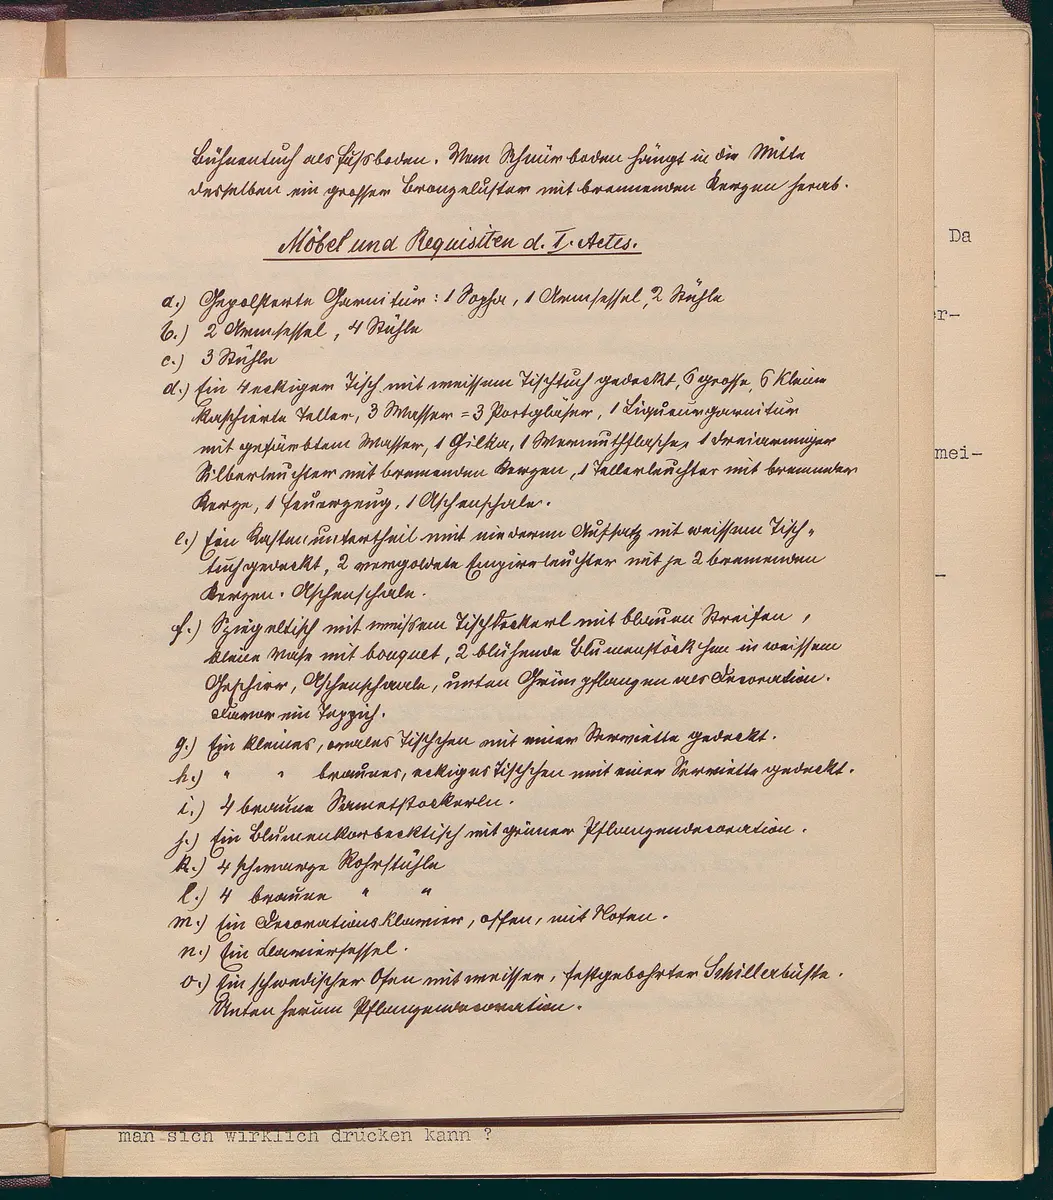 Bühnentuch als Fussboden. Vom Schnürboden hängt in die Mitte
desselben ein grosser Bronzeluster mit brennenden Kerzen herab.
Möbel und Requisiten d. I. Actes.
a.) Gepolsterte Garnitur: 1 Sopha, 1 Armsessel, 2 Stühle
b.) 2 Armsessel, 4 Stühle
c.) 3 Stühle
d.) Ein 4eckiger Tisch mit weissem Tischtuch gedeckt, 6 grosse, 6 kleine
kaschierte Teller, 3 Wasser = 3 Portgläser, 1 Liqueurgarnitur
mit gefärbtem Wasser, 1 Gilka, 1 Wermuthflasche, 1 dreiarmiger
Silberleuchter mit brennenden Kerzen, 1 Tellerleuchter mit brennender
Kerze, 1 Feuerzeug, 1 Aschenschale.
e.) Ein Kastenuntertheil mit niederem Aufsatz mit weissem Tisch=
tuch gedeckt, 2 vergoldete Empireleuchter mit je 2 brennenden
Kerzen. Aschenschale.
f.) Spiegeltisch mit weissem Tischdeckerl mit blauen Streifen,
kleine Vase mit bouquet, 2 blühende Blumenstöckchen in weissem
Geschirr, Aschenschaale, unten Grünpflanzen als Decoration.
Davor ein Teppich.
g.) Ein kleines, ovales Tischchen mit einer Serviette gedeckt.
h.) " " braunes, eckiges Tischchen mit einer Serviette gedeckt.
i.) 4 braune Sametstockerln.
j.) Ein Blumenkorbecktisch mit grüner Pflanzendecoration.
k.) 4 schwarze Rohrstühle
l.) 4 braune " "
m.) Ein Decorationsklavier, offen, mit Noten.
n.) Ein Klaviersessel.
o.) Ein schwedischer Ofen mit weisser, festgebohrter Schillerbüste.
Unten herum Pflanzendecoration.
Da
er-
mei-
-
man sich wirklich drücken kann ?